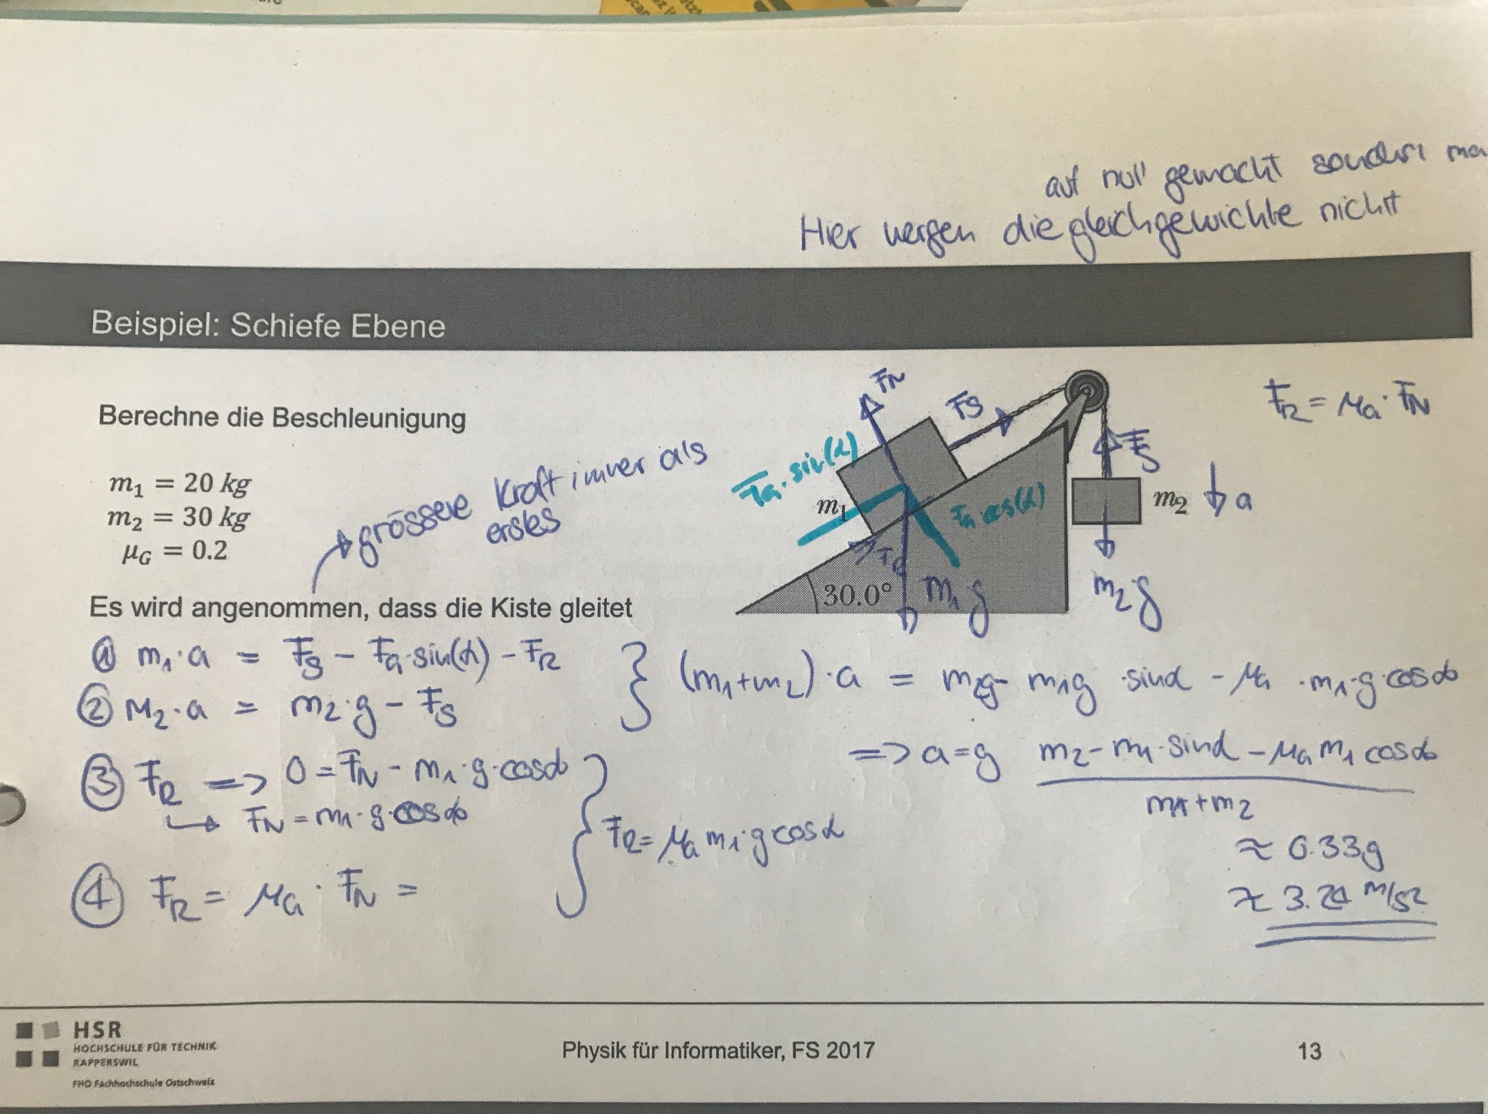 auf null gemacht sondern ma
Hier werden die gleichgewichte nicht
Beispiel: Schiefe Ebene
Berechne die Beschleunigung
m₁ = 20 kg
m₂ = 30 kg
μ_G = 0.2
grössere Kraft immer als
erstes
Es wird angenommen, dass die Kiste gleitet
F_N
F_S
F_G · sin(α)
m₁
F_G cos(α)
F_R
30.0°
m₁ g
F_S
m₂
a
m₂ g
F_R = μ_G · F_N
① m₁ · a = F_S - F_G · sin(α) - F_R
② m₂ · a = m₂ · g - F_S
(m₁+m₂) · a = m₂g - m₁g · sin α - μ_G · m₁ · g · cos α
③ F_R => 0 = F_N - m₁ · g · cos α
↳ F_N = m₁ · g · cos α
④ F_R = μ_G · F_N =
F_R = μ_G m₁ · g cos α
=> a = g (m₂ - m₁ · sin α - μ_G m₁ cos α) / (m₁ + m₂)
≈ 0.33g
≈ 3.24 m/s²
HSR
HOCHSCHULE FÜR TECHNIK
RAPPERSWIL
FHO Fachhochschule Ostschweiz
Physik für Informatiker, FS 2017
13